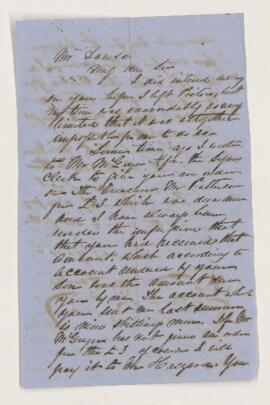 Mr Dawson
My Dear Sir
I did intend calling
on you before I left Pictou, but
my time was unavoidably so very
limited that it was altogether
impossible for me to do so.
Some time ago I wrote
to Mr McGregor for the
clerk to give you an order
on the Mr Patterson
for £3 which was due me
and I have always been
under the impression that
that you had received that
amount which according to
account by your
Son was the amount due
you by me. The account which
you sent me last summer
is nine Shillings more. If Mr
McGregor has not given an order
for the £3 of course I will
pay it to Mr You